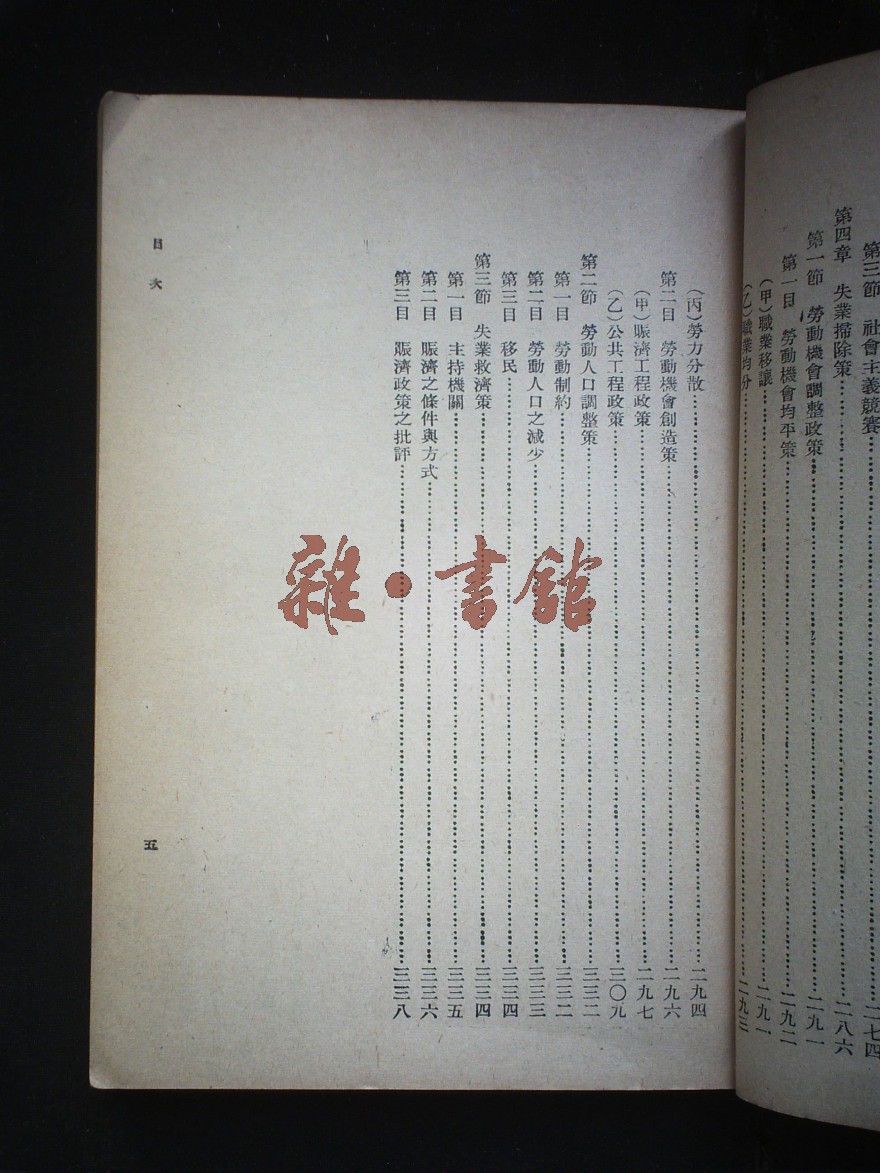 第三節 社會主義競賽……二七四
第四章 失業掃除策……二八六
第一節 勞動機會調整政策……二九一
第一目 勞動機會均平策……二九二
(甲)職業移讓……二九一
(乙)職業均分……二九三
(丙)勞力分散……二九四
第二目 勞動機會創造策……二九六
(甲)賑濟工程政策……二九七
(乙)公共工程政策……三〇九
第二節 勞動人口調整策……三三二
第一目 勞動制約……三三二
第二目 勞動人口之減少……三三三
第三目 移民……三三四
第三節 失業救濟策……三三四
第一目 主持機關……三三五
第二目 賑濟之條件與方式……三三六
第三目 賑濟政策之批評……三三八
目次
五
雜·書館